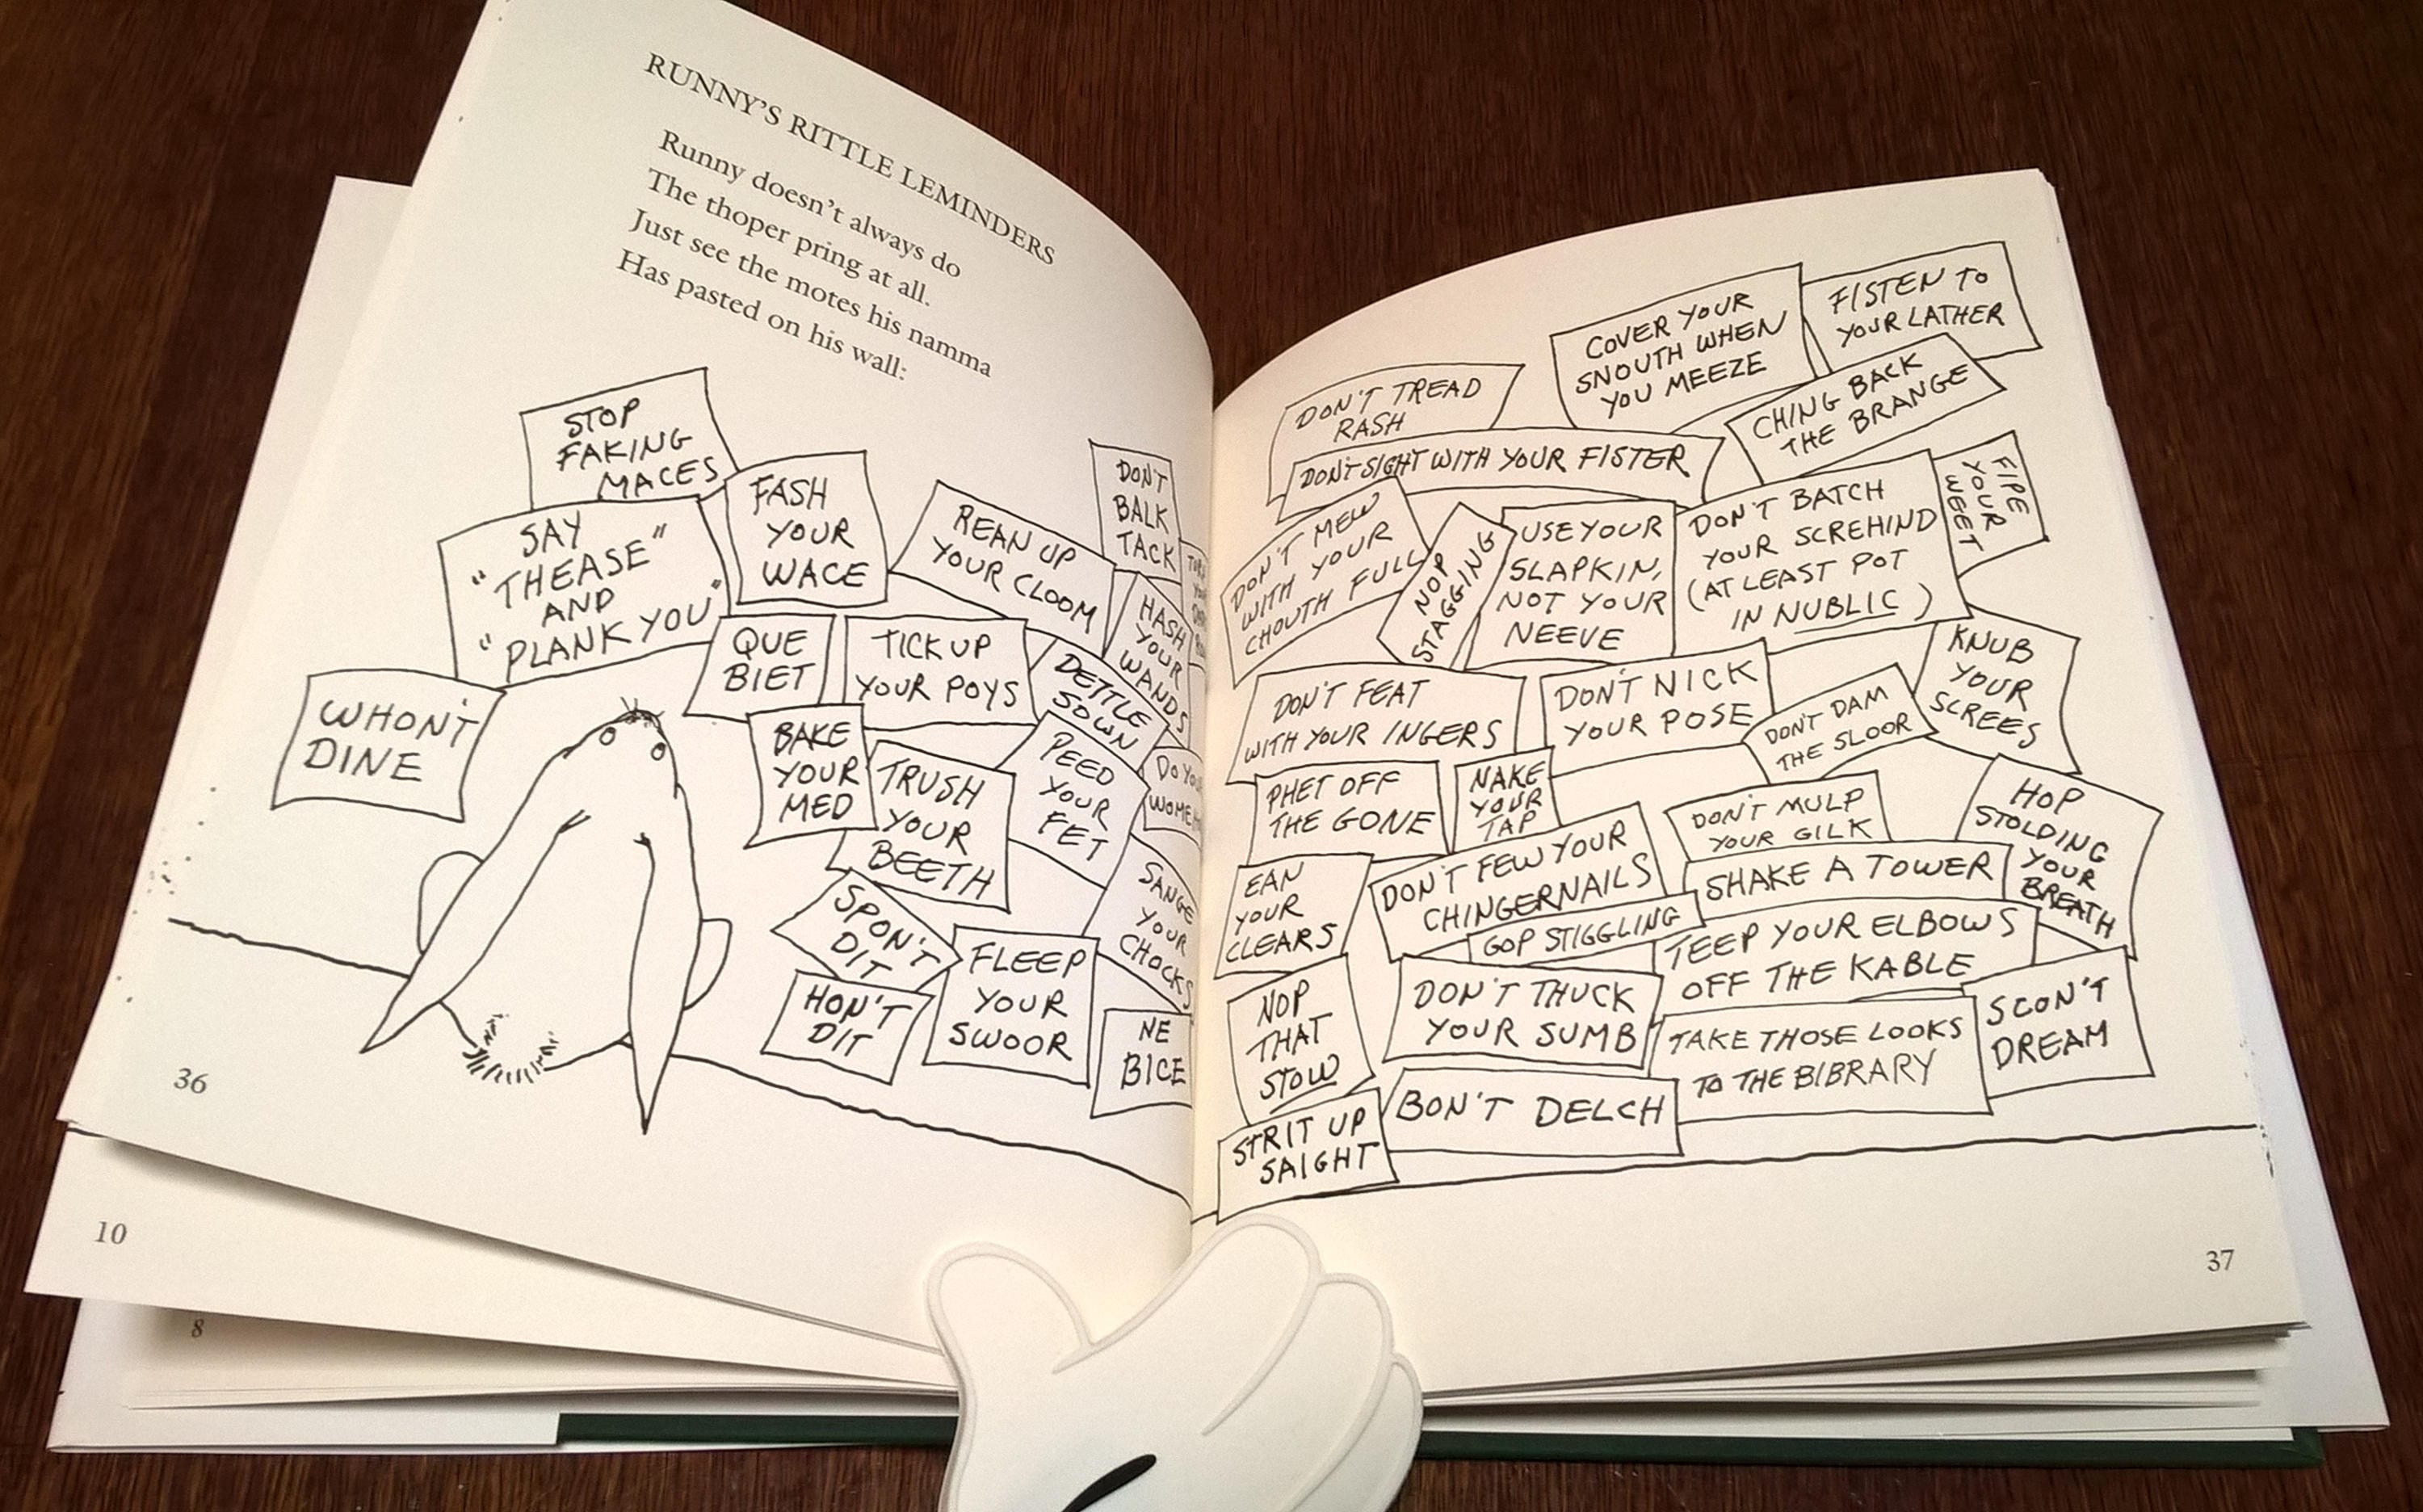 RUNNY'S RITTLE LEMINDERS
Runny doesn't always do
The thoper pring at all.
Just see the motes his namma
Has pasted on his wall:
STOP
FAKING
MACES
SAY
"THEASE"
AND
"PLANK YOU"
FASH
YOUR
WACE
REAN UP
YOUR CLOOM
DON'T
BALK
TACK
HASH
YOUR
WANDS
WHON'T
DINE
QUE
BIET
TICK UP
YOUR POYS
DETTLE
SOWN
BAKE
YOUR
MED
TRUSH
YOUR
BEETH
PEED
YOUR
FET
DO YOU
SPON'T
DIT
HON'T
DIT
FLEEP
YOUR
SWOOR
SANGE
YOUR
CHOCKS
NE
BICE
36
10
8
DON'T TREAD
RASH
COVER YOUR
SNOUTH WHEN
YOU MEEZE
FISTEN TO
YOUR LATHER
CHING BACK
THE BRANGE
DON'T SIGHT WITH YOUR FISTER
DON'T MEW
WITH YOUR
CHOUTH FULL
NOP
STAGGING
USE YOUR
SLAPKIN,
NOT YOUR
NEEVE
DON'T BATCH
YOUR SCREHIND
(AT LEAST POT
IN NUBLIC)
FIPE
YOUR
WEET
DON'T FEAT
WITH YOUR INGERS
DON'T NICK
YOUR POSE
DON'T DAM
THE SLOOR
KNUB
YOUR
SCREES
PHET OFF
THE GONE
NAKE
YOUR
TAP
DON'T MULP
YOUR GILK
HOP
STOLDING
YOUR
BREATH
EAN
YOUR
CLEARS
DON'T FEW YOUR
CHINGERNAILS
SHAKE A TOWER
GOP STIGGLING
TEEP YOUR ELBOWS
OFF THE KABLE
NOP
THAT
STOW
DON'T THUCK
YOUR SUMB
TAKE THOSE LOOKS
TO THE BIBRARY
SCON'T
DREAM
STRIT UP
SAIGHT
BON'T DELCH
37